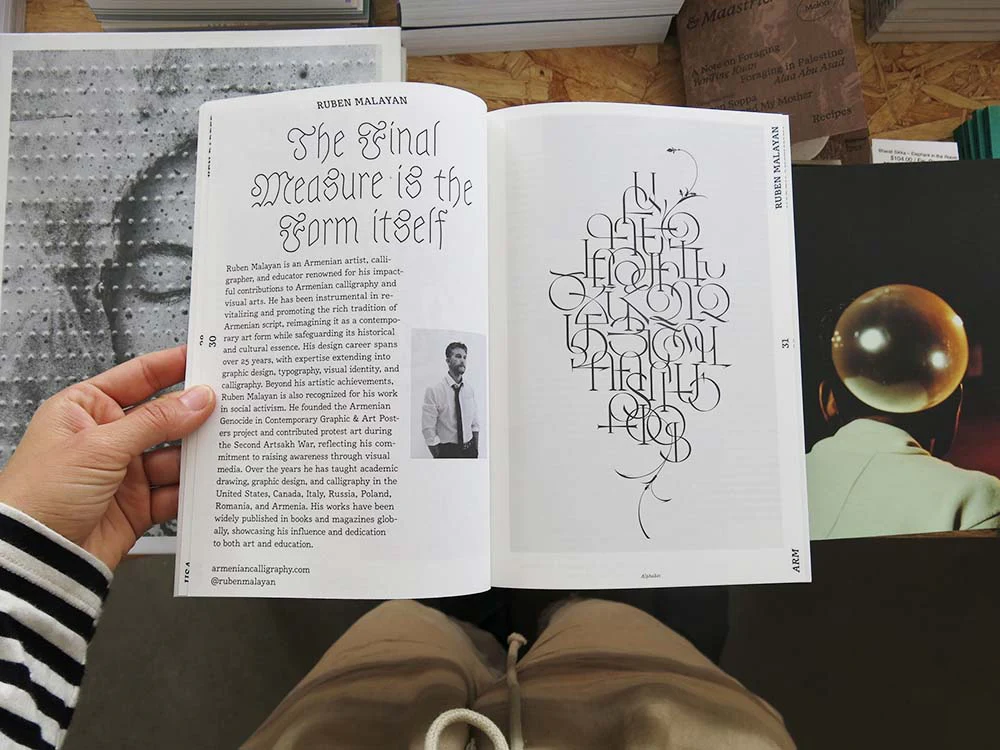 RUBEN MALAYAN
The Final
Measure is the
Form itself
Ruben Malayan is an Armenian artist, calli-
grapher, and educator renowned for his impact-
ful contributions to Armenian calligraphy and
visual arts. He has been instrumental in re-
vitalizing and promoting the rich tradition of
Armenian script, reimagining it as a contempo-
rary art form while safeguarding its historical
and cultural essence. His design career spans
over 25 years, with expertise extending into
graphic design, typography, visual identity, and
calligraphy. Beyond his artistic achievements,
Ruben Malayan is also recognized for his work
in social activism. He founded the Armenian
Genocide in Contemporary Graphic & Art Post-
ers project and contributed protest art during
the Second Artsakh War, reflecting his com-
mitment to raising awareness through visual
media. Over the years he has taught academic
drawing, graphic design, and calligraphy in the
United States, Canada, Italy, Russia, Poland,
Romania, and Armenia. His works have been
widely published in books and magazines glob-
ally, showcasing his influence and dedication
to both art and education.
armeniancalligraphy.com
@rubenmalayan
30
USA
RUBEN MALAYAN
31
ARM
Alphabet
A Note on Foraging
Foraging in Palestine
Alaa Abu Asad
My Mother
Recipes
Bharat Sikka – Elephant in the Room